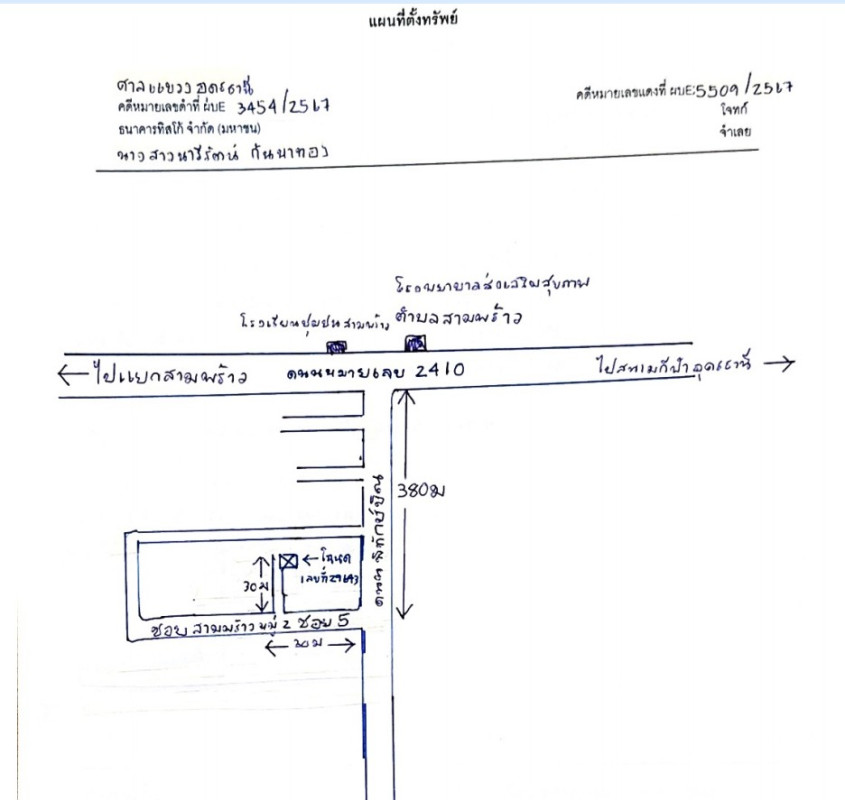 แผนที่ตั้งทรัพย์
ศาลแขวงอุดรธานี
คดีหมายเลขดำที่ ผบE 3454/2567
คดีหมายเลขแดงที่ ผบE5509/2567
ธนาคารทิสโก้ จำกัด (มหาชน)
โจทก์
นางสาวนารีรัตน์ กันนาทอง
จำเลย
โรงพยาบาลส่งเสริมสุขภาพ
ตำบลสามพร้าว
โรงเรียนชุมชนสามพร้าว
ไปแยกสามพร้าว
ถนนหมายเลข 2410
ไปสนามกีฬาอุดรธานี
380ม
ถนน
โฉนด
เลขที่
30ม
ซอย สามพร้าว หมู่ 2 ซอย 5